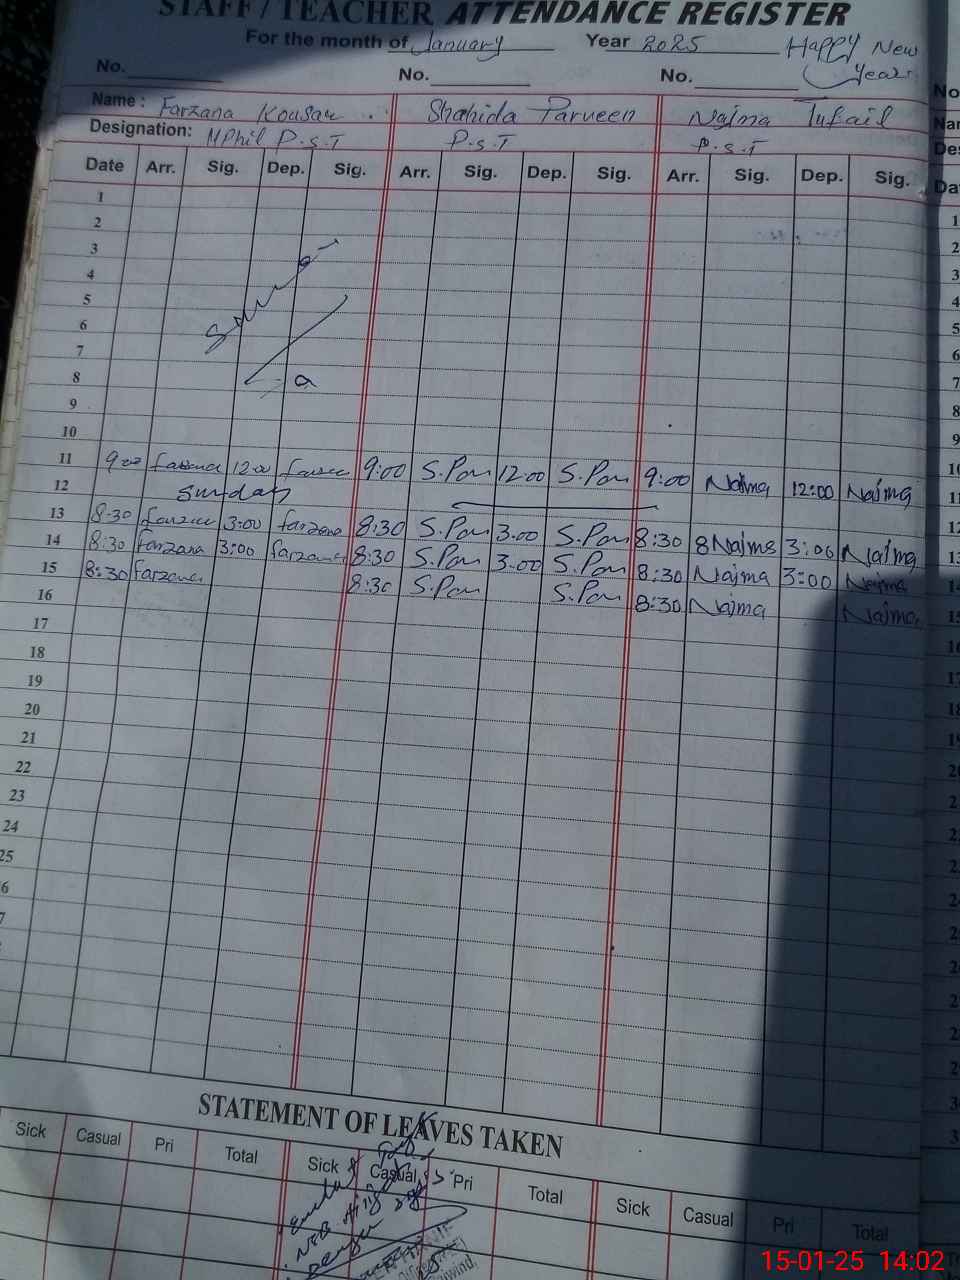 STAFF / TEACHER ATTENDANCE REGISTER
For the month of January Year 2025 Happy New Year
No. No. No.
Name : Farzana Kousar Shahida Parveen Najma Tufail
Designation: MPhil P.S.T P.S.T P.S.T
Date Arr. Sig. Dep. Sig. Arr. Sig. Dep. Sig. Arr. Sig. Dep. Sig.
1
2
3
4
5
6
7
8
9
10
11 9:00 farzana 12:00 farzana 9:00 S.Par 12:00 S.Par 9:00 Najma 12:00 Najma
12 Sunday
13 8:30 farzana 3:00 farzana 8:30 S.Par 3:00 S.Par 8:30 Najma 3:00 Najma
14 8:30 farzana 3:00 farzana 8:30 S.Par 3:00 S.Par 8:30 Najma 3:00 Najma
15 8:30 farzana 8:30 S.Par S.Par 8:30 Najma Najma
16
17
18
19
20
21
22
23
24
25
STATEMENT OF LEAVES TAKEN
Sick Casual Pri Total Sick Casual Pri Total Sick Casual Pri Total
15-01-25 14:02